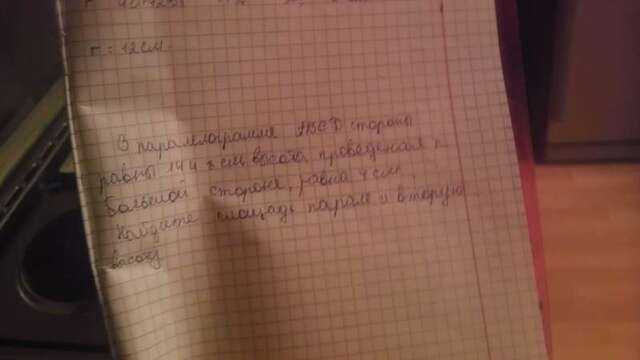 r = 12 см
В паралелограмме ABCD стороны
равны 14 и 8 см высота проведеная к
большой стороне, равна 4 см.
Найдите площадь парале и вторую
высоту